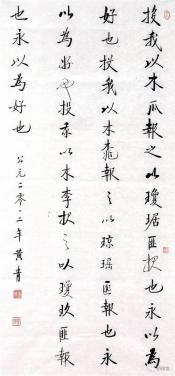 投我以木瓜報之以瓊琚匪報也永以為
好也投我以木桃報之以瓊瑤匪報也永
以為好也投我以木李報之以瓊玖匪報
也永以為好也
公元二零一二年黄青